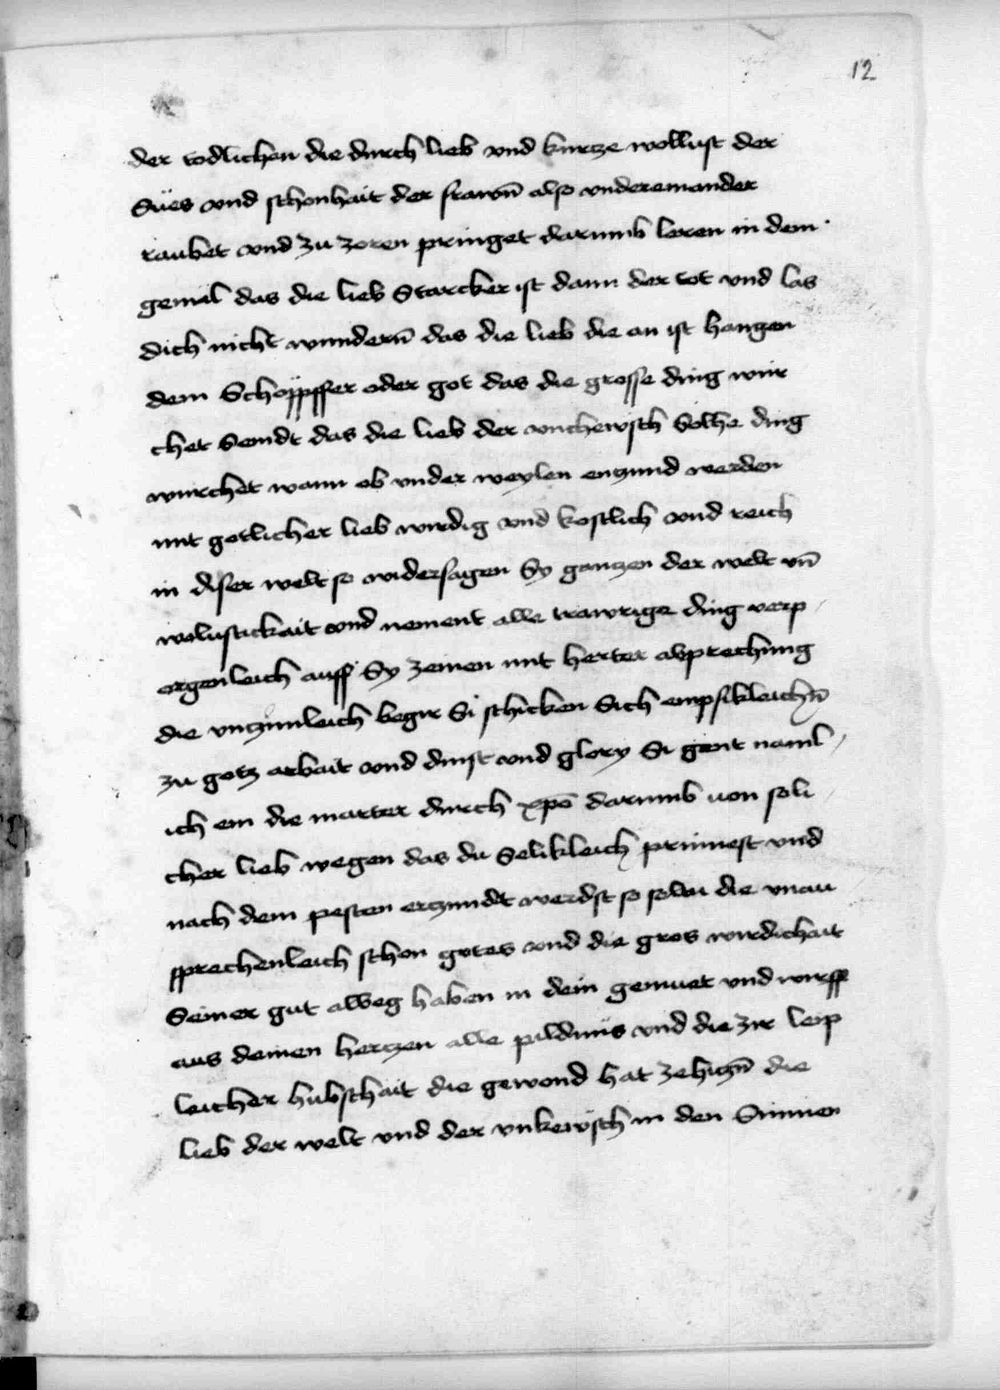 12
der todlichen die durch lieb vnd kurtze wollust der
Sües vnd schonhait der frawn̄ also vnder einander
raubet vnd zu zoren pringet darumb loren in dem
gemäl das die lieb Starcker ist dann der tot vnd las
dich nicht wundern̄ das die lieb die an ist hangen
dem Schöppffer oder got das die grosse ding wür
chet Seindt das die lieb der vnchewsch Sölhe ding
wurchet wann ob vnder weylen enzund werden
mit gotlicher lieb wirdig vnd kostlich vnd reich
in diser welt so widersagen Sy ganczen der welt vn̄
wolustickait vnd nement alle trawrige ding verp
orgenleich auff Sy zemen mit herter abprechung
die vnczimleich begir Si schicken Sich empsikleichn̄
zu gotz arbait vnd dinst vnd glory Si gent naml
ich em die marter durch xp̄o darumb uon soli
cher lieb wegen das du Selikleich prinnest vnd
nach dem pesten erczundt werdst so soltu die vnau
sprechenleich schon gotes vnd die gros wirdichait
Seiner gut alweg haben in dein gemuet vnd wirff
aus deinen herczen alle pildnüs vnd die zir leip
leicher hubschait die gewond hat zehiczn̄ die
lieb der welt vnd der vnkewsch in den Sinnen